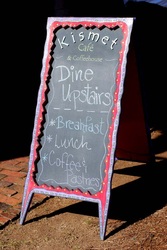 Kismet
Café
& Coffeehouse
Dine
Upstairs
* Breakfast
* Lunch
* Coffee
Pastries